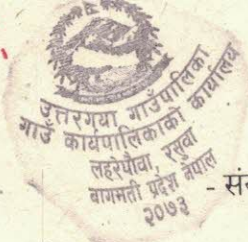 उत्तरगया गाउँपालिका
गाउँ कार्यपालिकाको कार्यालय
लहरेपौवा, रसुवा
बागमती प्रदेश नेपाल
२०७३
-